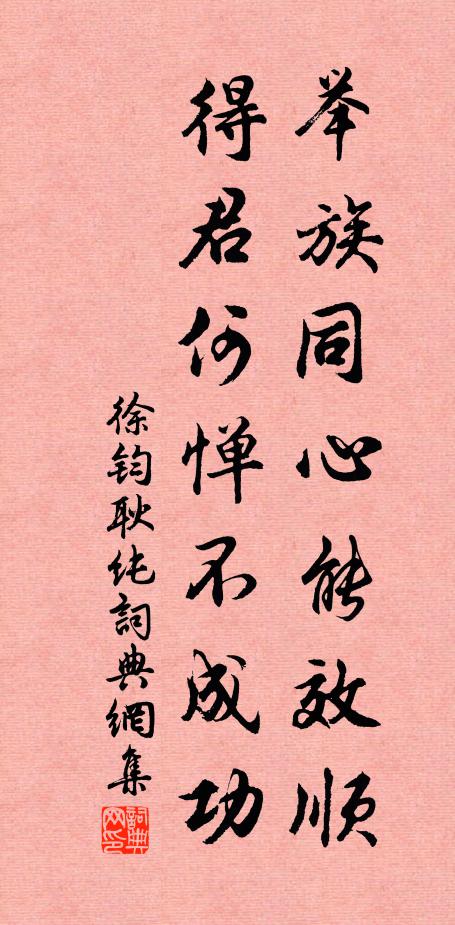 举族同心能效顺
得君何惮不成功
徐钧耿纯詞典網集
詞典网印